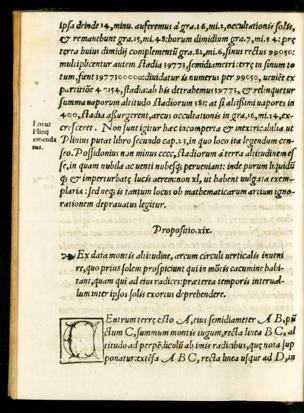 ipsa drinde 14, minu. auferemus à gra. 16, mi. 1, occultationis solis,
& remanebunt gra. 15, mi. 48: horum dimidium gra. 7, mi. 54: præ
terea huius dimidij complementū gra. 82, mi. 6, sinus rectus 99050:
multiplicentur autem stadia 39773, semidiametri terrę in sinum to
tum, fient
is numerus per 99050, uenięt ex
partitiōe 40154, stadia: ab his detrahemus 39773, & relinquetur
summa uaporum altitudo stadiorum 381: at si assistimi uapores in
400, stadia assurgerent, arcus occultationis in gra. 16, mi. 24, ex-
cresceret. Non sunt igitur hæc incomperta & inextricabilia ut
Plinius putat libro secundo cap. 23, in quo loco ita legendum cen-
seo. Possidonius non minus cccc, stadiorum à terra altitudinem es
se, in quam nubila ac uenti nubesq́; perueniant: inde purum liquidū
q́; & imperturbatę lucis aerem: non xl, ut habent uulgata exem-
plaria: sed neq; is tantum locus ob mathematicarum artium igno-
rationem deprauatus legitur.
Locus
Plinij
emenda
tus.
Propositio. xix.
Ex data montis altitudine, arcum circuli uerticalis inueni
re, quo prius solem prospiciunt qui in mōtis cacumine habi-
tant, quam qui ad eius radices: præterea temporis interual-
lum inter ipsos solis exortus deprehendere.
CEntrum terrę esto A, eius semidiameter A B, pū
ctum C, summum montis iugum, recta linea B C, al
titudo ad perpēdiculū ab imis radicibus, quę nota sup
ponatur: extēsa A B C, recta linea usque ad D, in